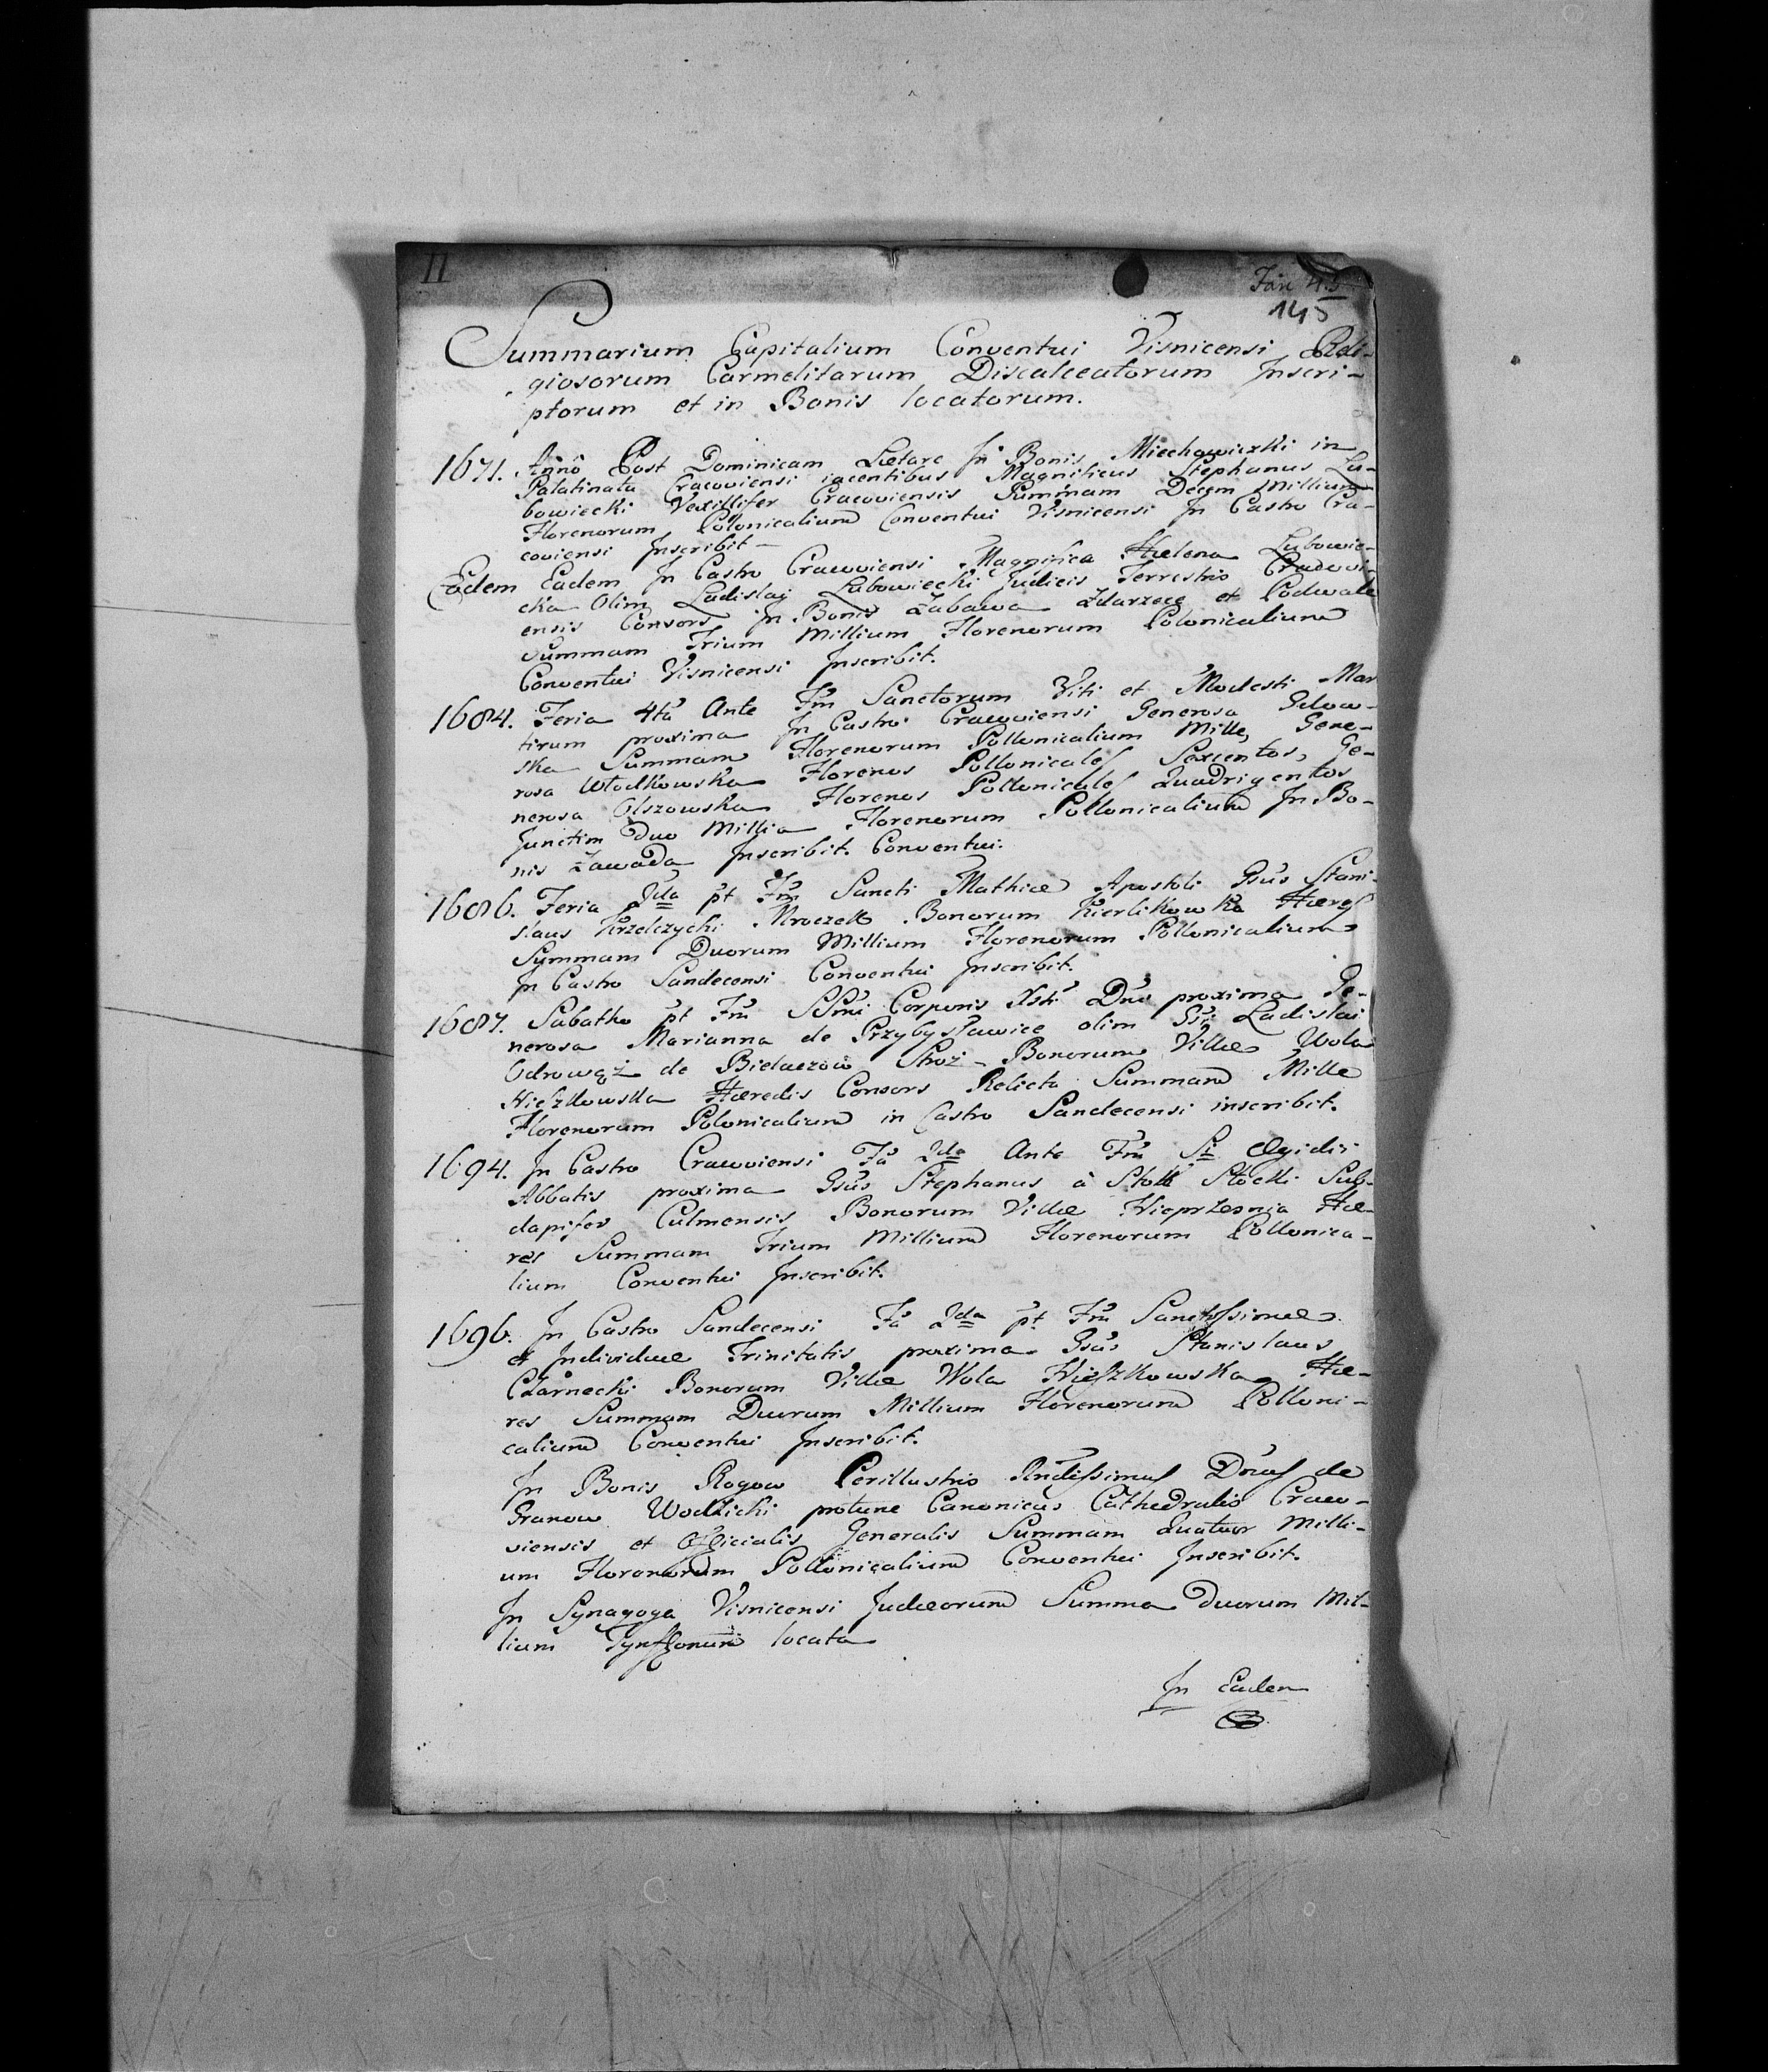 II
145
Summarium Capitalium Conventui Visnicensi Reli-
giosorum Carmelitarum Discalceatorum Inscri-
ptorum et in Bonis locatorum.
1671. Anno Post Dominicam Lætare In Bonis Miechowiczki in
Palatinatu Cracoviensi iacentibus Magnificus Stephanus Lu-
bowiecki Vexillifer Cracoviensis Summam Decem Millium
Florenorum Polonicalium Conventui Visnicensi In Castro Cra-
coviensi Inscribit
Eadem Eadem In Castro Cracoviensi Magnifica Hælena Lubowie-
cka Olim Ladislaj Lubowiecki Judicis Terrestris Cracovi-
ensis Consors In Bonis Zabawa Zdarzece et Podwale
Summam Trium Millium Florenorum Polonicalium
Conventui Visnicensi Inscribit.
1684. Feria 4ta Ante Fm Sanctorum Viti et Modesti Mar
tirum proxima In Castro Cracoviensi Generosa Gdow-
ska Summam Florenorum Pollonicalium Mille, Gene-
rosa Wlodkowska Florenos Pollonicales Sexcentos, Ge-
nerosa Olszowska Florenos Pollonicales Quadrigentos
Junctim Duo Millia Florenorum Pollonicalium In Bo-
nis Zawada Inscribit. Conventui.
1686. Feria 2da pt Fm Sancti Mathiæ Apostoli Gsus Stani-
slaus Krzelczycki Mroczek Bonorum Kierlikowka Hæres
Summam Duorum Millium Florenorum Pollonicalium
In Castro Sandecensi Conventui Inscribit.
1687. Sabatho pt Fm SSmi Corporis Xsti Dni proxima Ge-
nerosa Marianna de Przybysławice olim Gsi Ladislai
Odrowąż de Bielaczow Stroż - Bonorum Villæ Wola
Nieszkowska Hæredis Consors Relicta Summam Mille
Florenorum Polonicalium in Castro Sandecensi inscribit.
1694. In Castro Cracoviensi Fa 2da Ante Fm Sti Ægidii
Abbatis proxima Gsus Stephanus à Stoki Stocki Sub-
dapifer Culmensis Bonorum Villæ Nieprzesnia Hæ-
res Summam Trium Millium Florenorum Pollonica-
lium Conventui Inscribit.
1696. In Castro Sandecensi Fa 2da pt Fm Sanctissimæ
et Individuæ Trinitatis proxima Gsus Stanislaus
Czarnecki Bonorum Villæ Wola Nieszkowska Hæ-
res Summam Duorum Millium Florenorum Polloni-
calium Conventui Inscribit.
In Bonis Rogow Perillustris Rndissimus Dnus de
Granow Wodzicki protunc Canonicus Cathedralis Craco-
viensis et Officialis Generalis Summam Quatuor Milli-
um Florenorum Pollonicalium Conventui Inscribit.
In Synagoga Visnicensi Judæorum Summa Duorum Mil-
lium Tynffonum locata
In Eadem